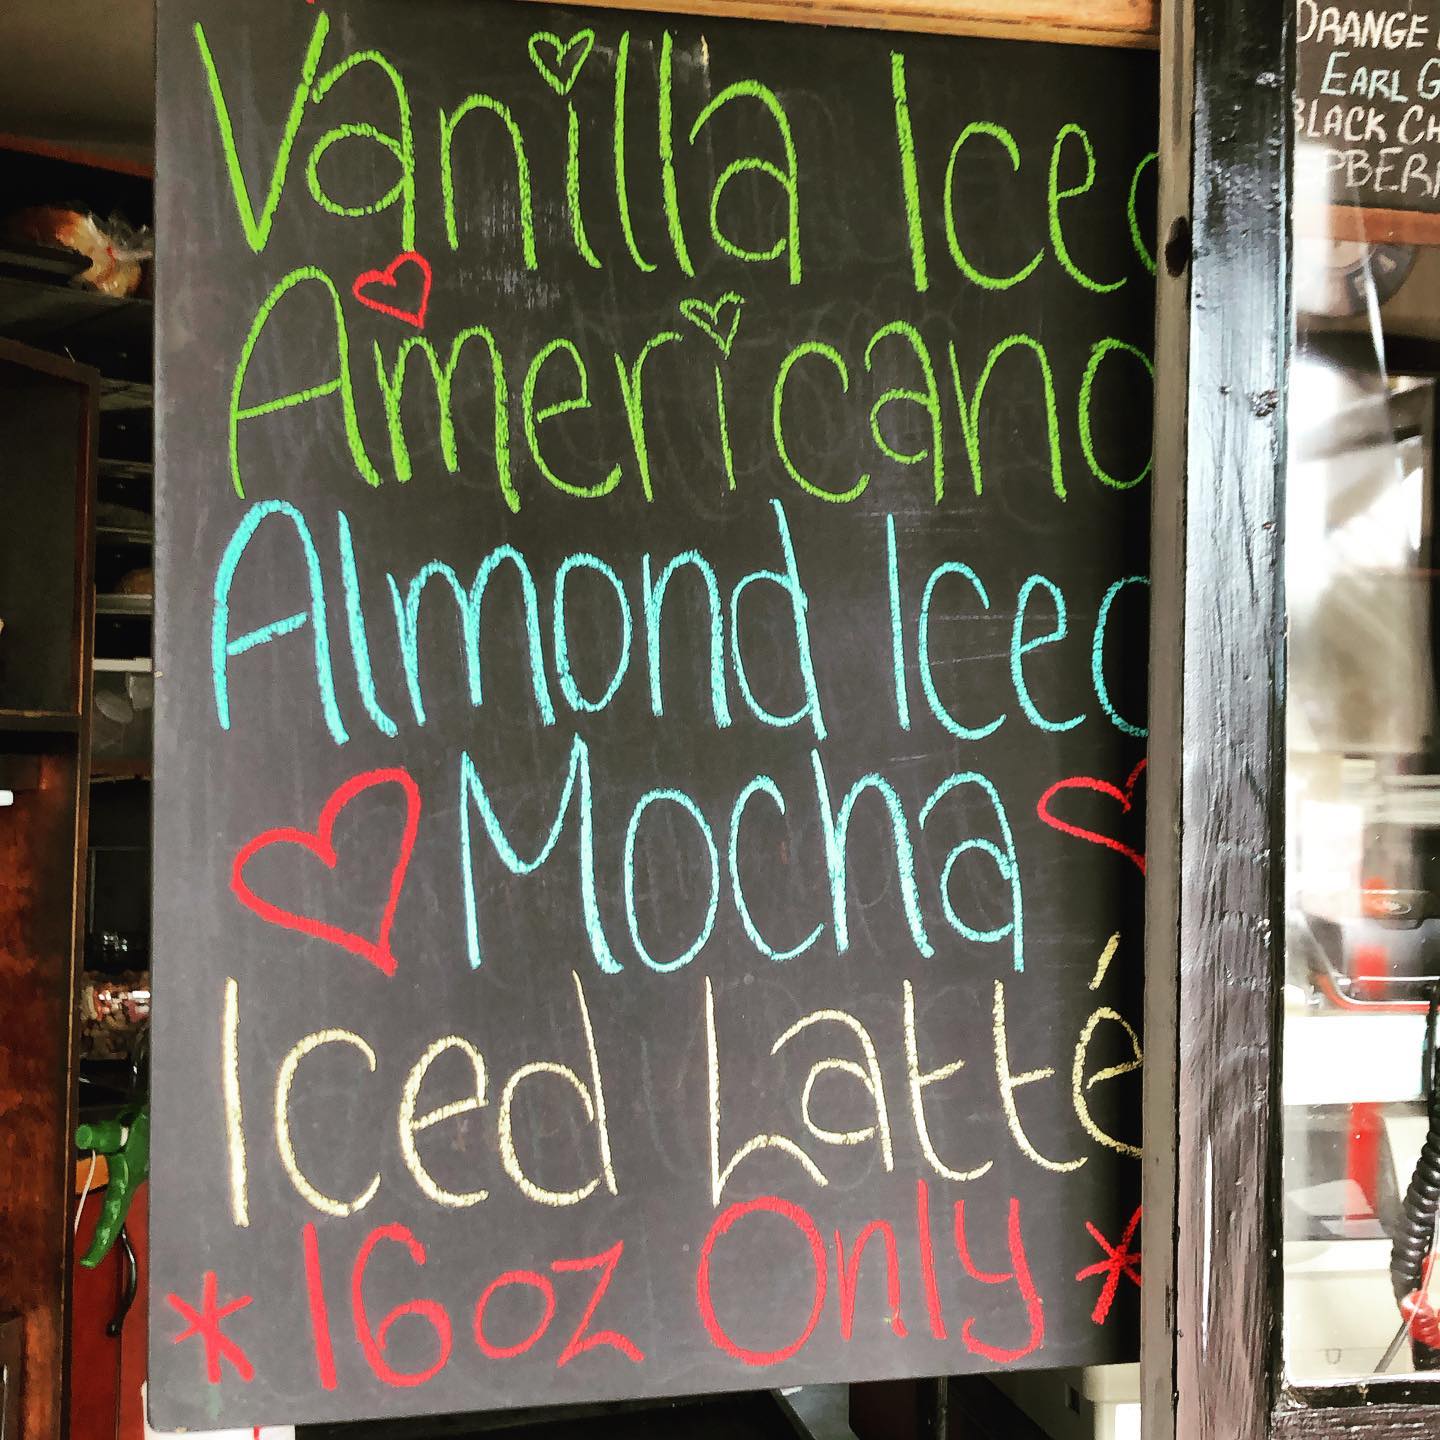 Vanilla Iced
Americano
Almond Iced
Mocha
Iced Latté
*16oz Only*
ORANGE
EARL G
BLACK CH